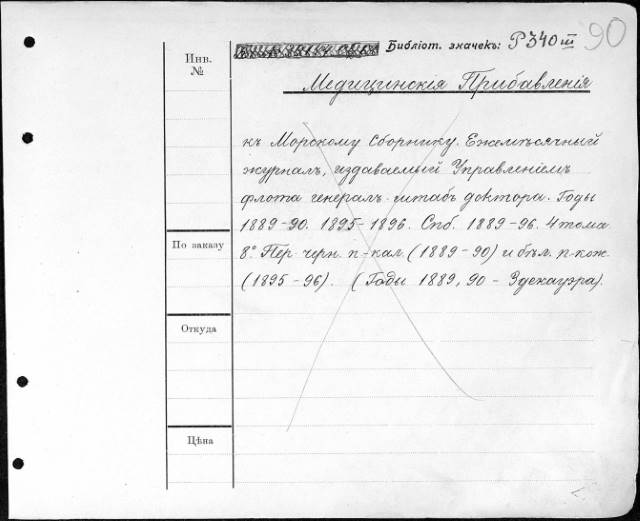 Инв.
№
Библіот. значекъ: P340 III
90
Медицинскія Прибавленія
къ Морскому Сборнику. Ежемѣсячный
журналъ, издаваемый Управленіемъ
флота генералъ-штабъ доктора. Годы
1889-90. 1895-1896. Спб. 1889-96. 4 тома
8° Пер. черн. п-кал. (1889-90) и бѣл. п-кож.
(1895-96). (Годы 1889, 90 - Здекауэра).
По заказу
Откуда
Цѣна